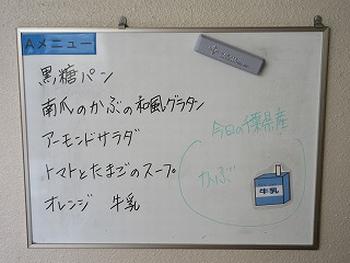 Aメニュー
黒糖パン
南瓜のかぶの和風グラタン
アーモンドサラダ
トマトとたまごのスープ
オレンジ 牛乳
今日の千葉県産
かぶ
牛乳